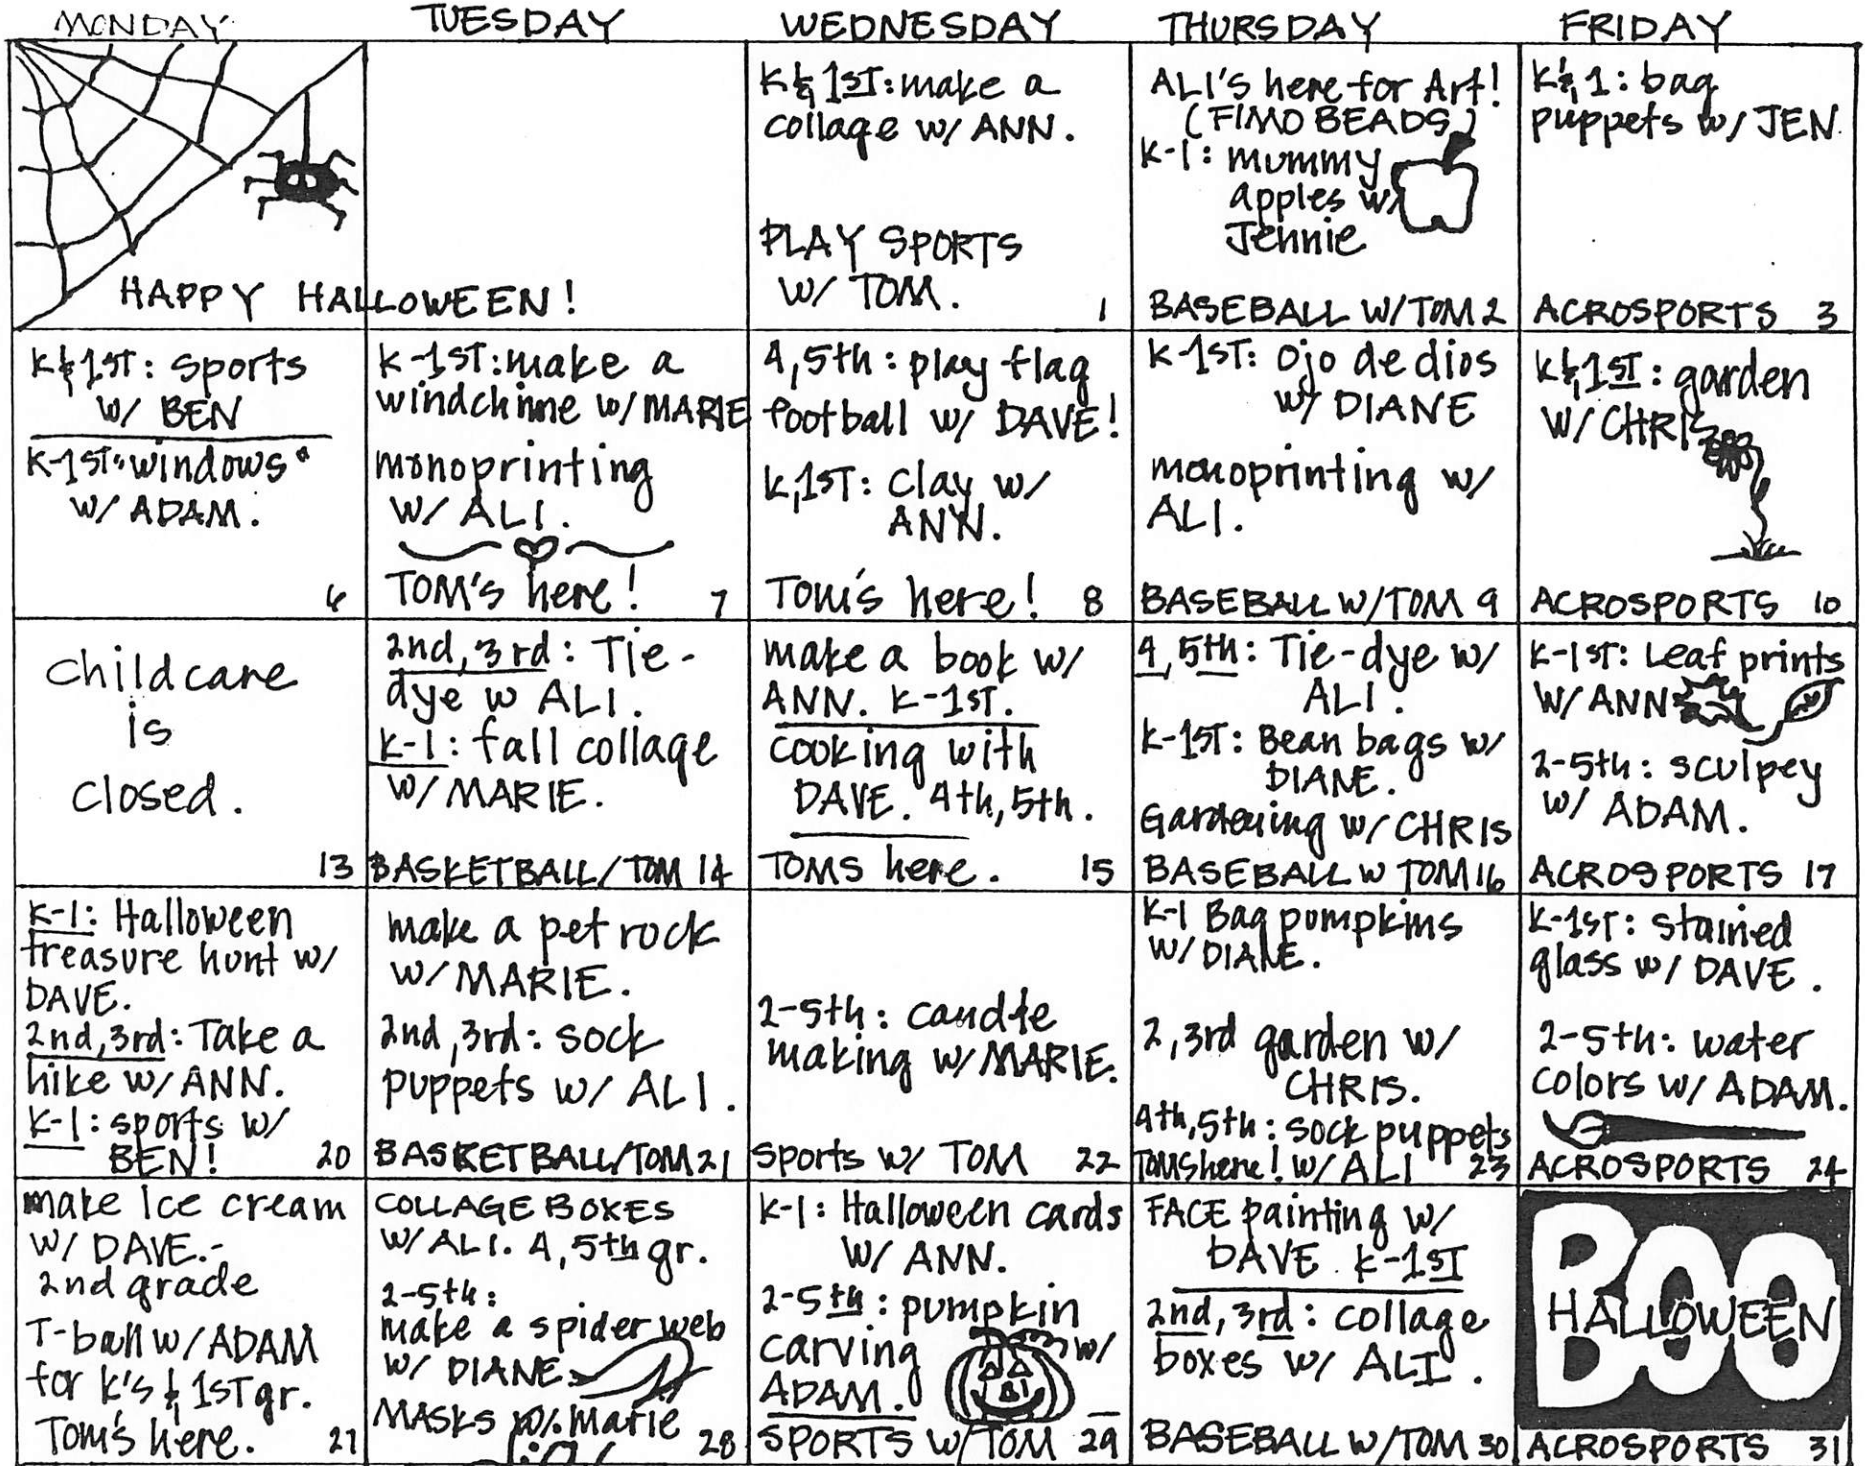 MONDAY TUESDAY WEDNESDAY THURSDAY FRIDAY
HAPPY HALLOWEEN!
K & 1ST: make a
collage w/ ANN.
PLAY SPORTS
W/ TOM.
1
ALI'S here for Art!
(FIMO BEADS)
K-1: mummy
apples w/
Jennie
BASEBALL W/TOM 2
K & 1: bag
puppets w/ JEN
ACROSPORTS 3
K & 1ST: sports
w/ BEN
K-1ST: windows
w/ ADAM.
6
K-1ST: make a
windchime w/ MARIE
monoprinting
W/ ALI.
TOM'S here! 7
4,5th: play flag
football w/ DAVE!
K,1ST: Clay w/
ANN.
Tom's here! 8
K-1ST: Ojo de dios
w/ DIANE
monoprinting w/
ALI.
BASEBALL W/TOM 9
K & 1ST: garden
W/ CHRIS
ACROSPORTS 10
Childcare
is
closed.
13
2nd, 3rd: Tie-
dye w ALI.
K-1: fall collage
W/ MARIE.
BASKETBALL/TOM 14
make a book w/
ANN. K-1ST.
cooking with
DAVE. 4th, 5th.
TOMS here. 15
4, 5th: Tie-dye w/
ALI.
K-1ST: Bean bags w/
DIANE.
Gardening w/ CHRIS
BASEBALL W TOM 16
K-1ST: Leaf prints
W/ ANN
2-5th: sculpey
w/ ADAM.
ACROSPORTS 17
K-1: Halloween
treasure hunt w/
DAVE.
2nd, 3rd: Take a
hike w/ ANN.
K-1: sports w/
BEN! 20
make a pet rock
W/ MARIE.
2nd, 3rd: sock
puppets w/ ALI.
BASKETBALL/TOM 21
2-5th: candle
making w/ MARIE.
Sports w/ TOM 22
K-1 Bag pumpkins
W/ DIANE.
2,3rd garden w/
CHRIS.
4th, 5th: sock puppets
TOMS here! w/ ALI 23
K-1ST: stained
glass w/ DAVE.
2-5th: water
colors w/ ADAM.
ACROSPORTS 24
make Ice cream
W/ DAVE.-
2nd grade
T-ball w/ ADAM
for K's & 1ST gr.
Tom's here. 27
COLLAGE BOXES
W/ ALI. 4, 5th gr.
2-5th:
make a spider web
W/ DIANE
MASKS w/. Marie
28
K-1: Halloween cards
W/ ANN.
2-5th: pumpkin
carving w/
ADAM.
SPORTS W/TOM 29
FACE painting w/
DAVE. K-1ST
2nd, 3rd: collage
boxes w/ ALI.
BASEBALL W/TOM 30
BOO
HALLOWEEN
ACROSPORTS 31